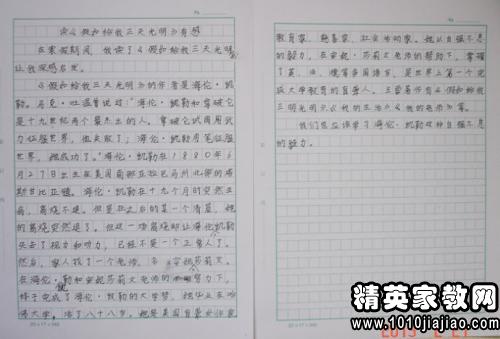 读《假如给我三天光明》有感
在寒假期间,我读了《假如给我三天光明》
让我深感启发。
《假如给我三天光明》的作者是海伦·凯
勒。马克·吐温曾说过:“海伦·凯勒和拿破仑
是十九世纪两个最杰出的人。拿破仑试图用武
力征服世界,他失败了;海伦·凯勒用笔征服
世界,她成功了。”海伦·凯勒在1880年6
月27日出生在美国南部亚拉巴马州北部的塔
斯甘比亚镇。海伦·凯勒在十九个月时突然生
病,高烧不退。但是在之后的某一个清晨,她
的高烧突然退了。但这一场高烧却让海伦凯勒
失去了视力和听力,已经不是一个正常人了。
然后,家人找了一个老师,名 安妮莎莉文。
在海伦·凯勒和安妮莎莉文老师的 努力下,
终于完成了海伦·凯勒的大学梦,把毕业在哈
佛大学。活了八十八岁。她是美国盲聋女作家
20×17=340
教育家、慈善家、社会活动家。她以自强不息
的毅力,在安妮·莎莉文老师的帮助下,掌握
了英、法、德等多国语言,是世界上第一个完
成大学教育的盲聋人。主要著作有《假如给我
三天光明》《我的生活》《我的老师》等。
我们应该学习海伦·凯勒这种自强不息
的毅力。
20×17=340
精英家教网
www.1010jiajiao.com